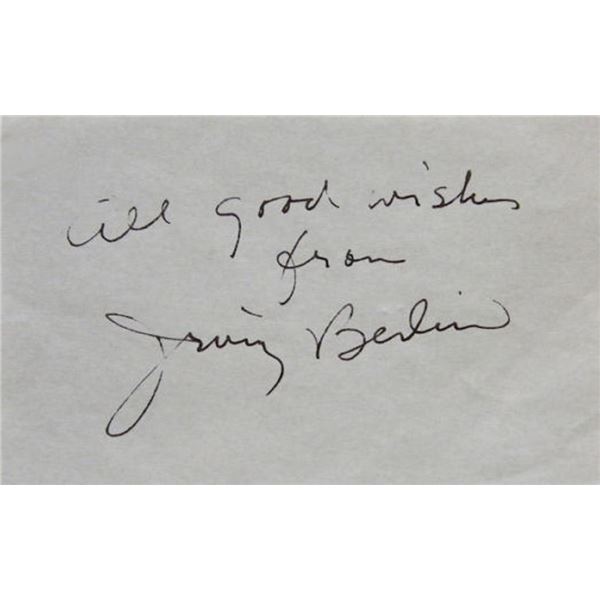 all good wishes
from
Irving Berlin